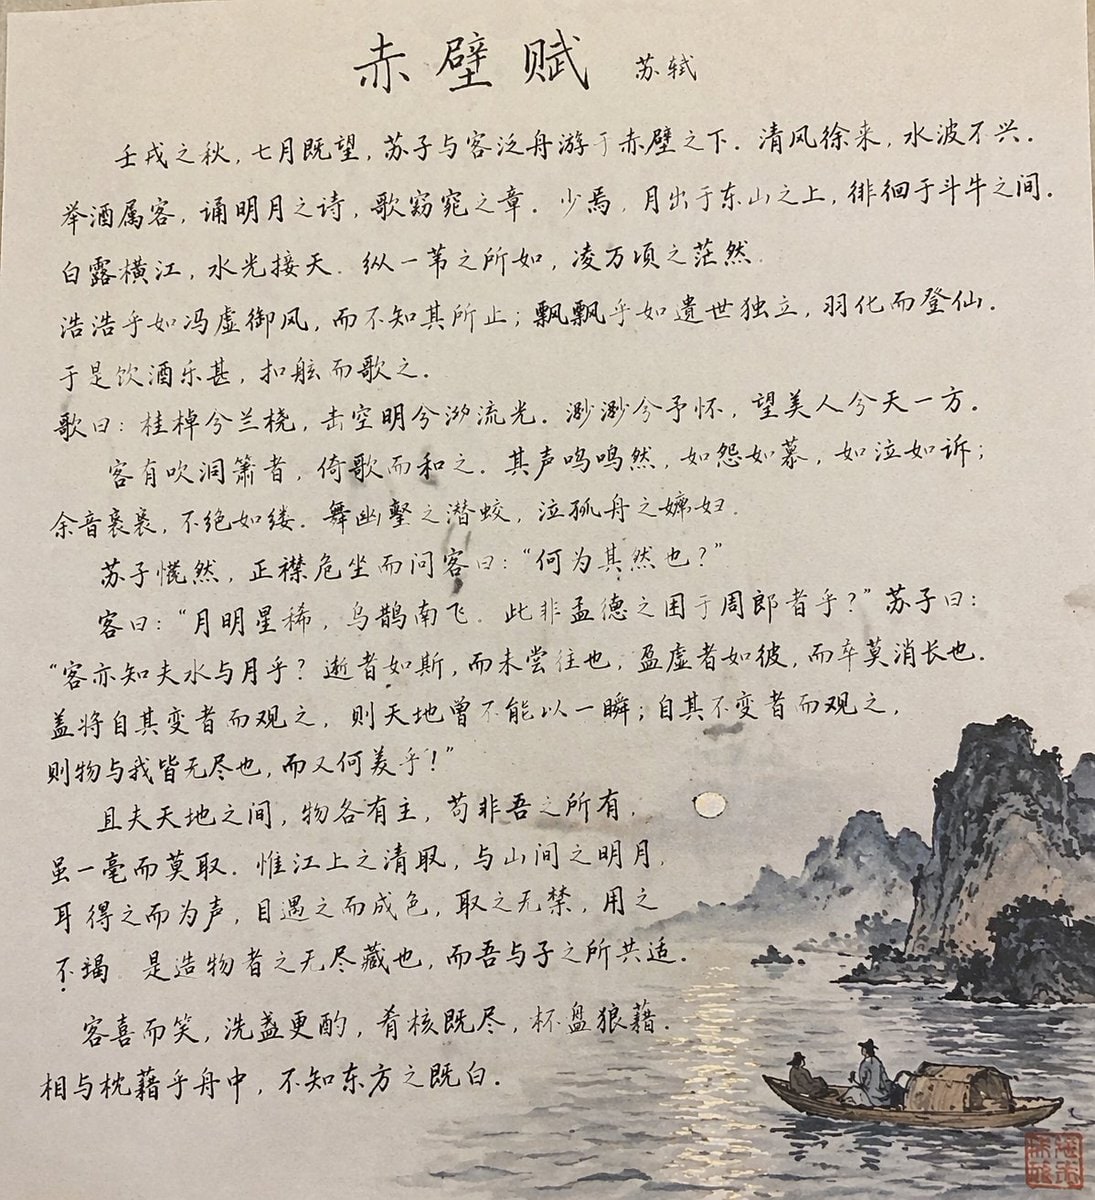 赤壁赋 苏轼
壬戌之秋，七月既望，苏子与客泛舟游于赤壁之下．清风徐来，水波不兴．
举酒属客，诵明月之诗，歌窈窕之章．少焉，月出于东山之上，徘徊于斗牛之间．
白露横江，水光接天．纵一苇之所如，凌万顷之茫然．
浩浩乎如冯虚御风，而不知其所止；飘飘乎如遗世独立，羽化而登仙．
于是饮酒乐甚，扣舷而歌之．
歌曰：桂棹兮兰桡，击空明兮泝流光．渺渺兮予怀，望美人兮天一方．
客有吹洞箫者，倚歌而和之．其声呜呜然，如怨如慕，如泣如诉；
余音袅袅，不绝如缕．舞幽壑之潜蛟，泣孤舟之嫠妇．
苏子愀然，正襟危坐而问客曰：“何为其然也？”
客曰：“月明星稀，乌鹊南飞．此非孟德之困于周郎者乎？”苏子曰：
“客亦知夫水与月乎？逝者如斯，而未尝往也，盈虚者如彼，而卒莫消长也．
盖将自其变者而观之，则天地曾不能以一瞬；自其不变者而观之，
则物与我皆无尽也，而又何羡乎！”
且夫天地之间，物各有主，苟非吾之所有，
虽一毫而莫取．惟江上之清风，与山间之明月，
耳得之而为声，目遇之而成色，取之无禁，用之
不竭．是造物者之无尽藏也，而吾与子之所共适．
客喜而笑，洗盏更酌，肴核既尽，杯盘狼藉．
相与枕藉乎舟中，不知东方之既白．